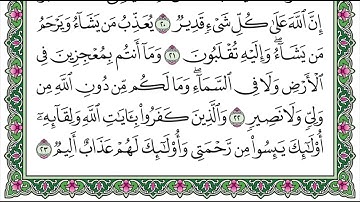 إِنَّ ٱللَّهَ عَلَىٰ كُلِّ شَىْءٍ قَدِيرٌ ٢٠ يُعَذِّبُ مَن يَشَآءُ وَيَرْحَمُ
مَن يَشَآءُ ۖ وَإِلَيْهِ تُقْلَبُونَ ٢١ وَمَآ أَنتُم بِمُعْجِزِينَ فِى
ٱلْأَرْضِ وَلَا فِى ٱلسَّمَآءِ ۖ وَمَا لَكُم مِّن دُونِ ٱللَّهِ مِن
وَلِىٍّ وَلَا نَصِيرٍ ٢٢ وَٱلَّذِينَ كَفَرُوا۟ بِـَٔايَـٰتِ ٱللَّهِ وَلِقَآئِهِۦٓ
أُو۟لَـٰٓئِكَ يَئِسُوا۟ مِن رَّحْمَتِى وَأُو۟لَـٰٓئِكَ لَهُمْ عَذَابٌ أَلِيمٌ ٢٣